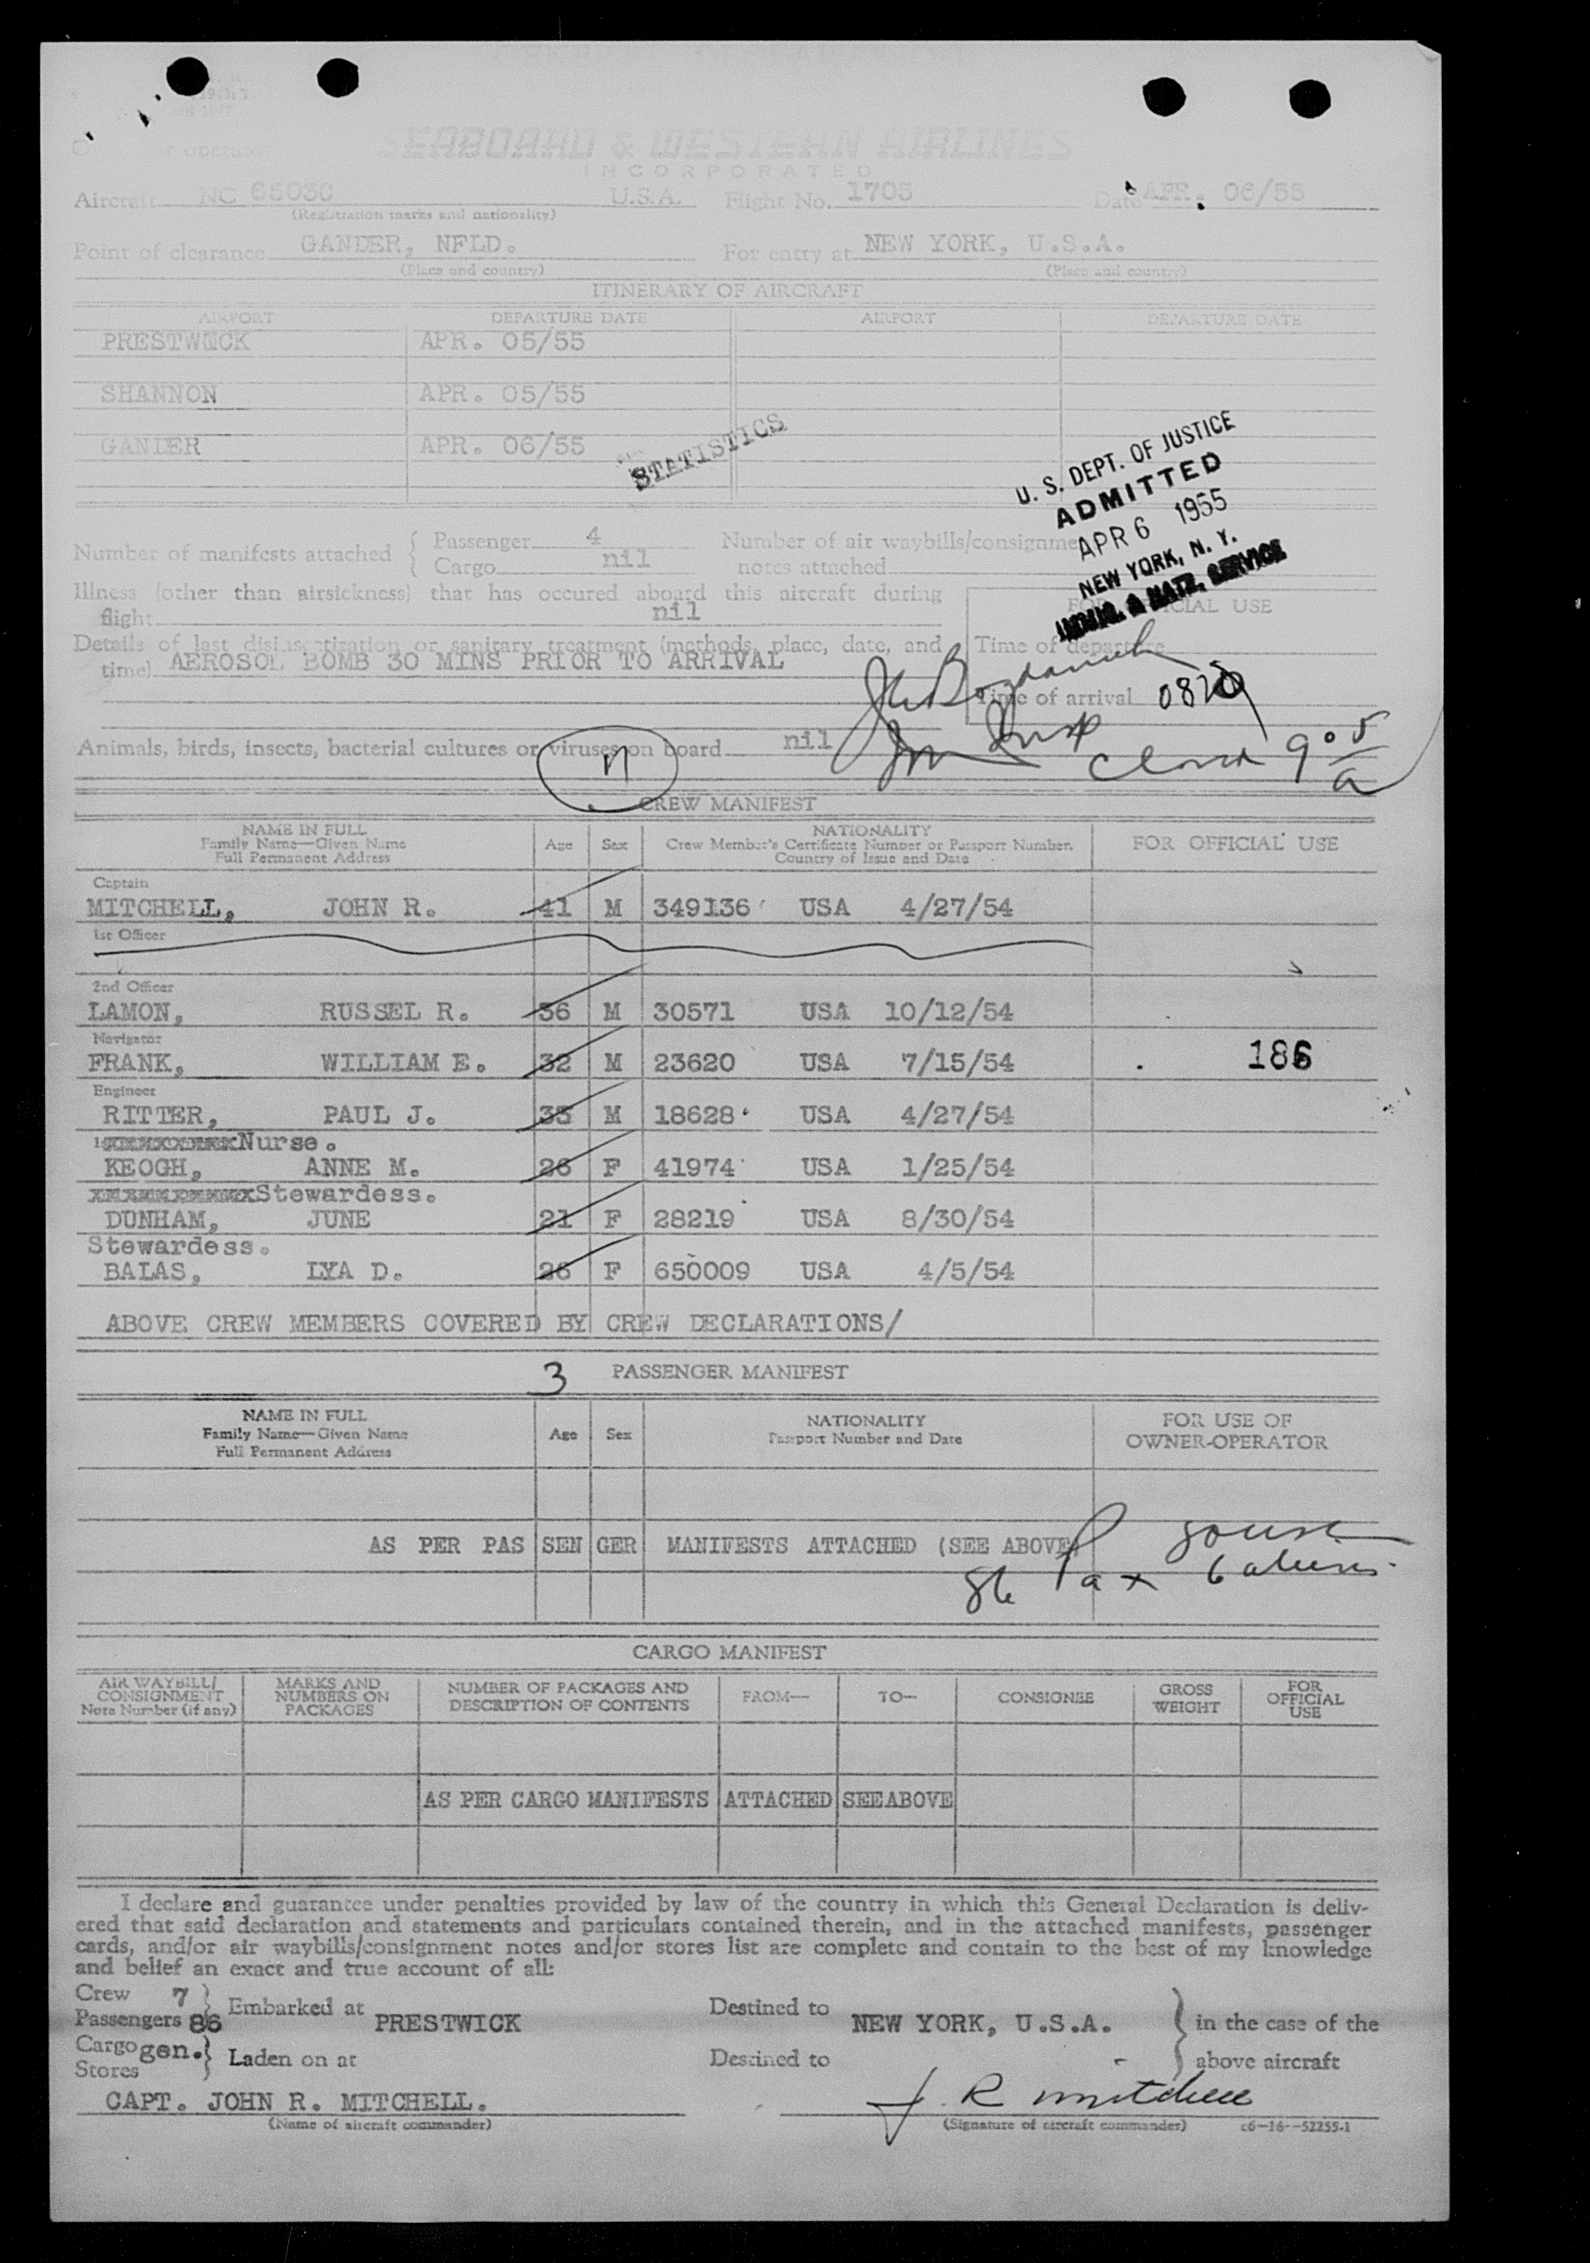 SEABOARD & WESTERN AIRLINES
INCORPORATED
Aircraft NC 6503C U.S.A. Flight No. 1705 Date APR. 06/55
(Registration marks and nationality)
Point of clearance GANDER, NFLD. For entry at NEW YORK, U.S.A.
(Place and country) (Place and country)
ITINERARY OF AIRCRAFT
AIRPORT DEPARTURE DATE AIRPORT DEPARTURE DATE
PRESTWICK APR. 05/55
SHANNON APR. 05/55
GANDER APR. 06/55
STATISTICS
U. S. DEPT. OF JUSTICE
ADMITTED
APR 6 1955
NEW YORK, N. Y.
IMMIG. & NATZ. SERVICE
Number of manifests attached { Passenger 4 Number of air waybills/consignment
Cargo nil notes attached
Illness (other than airsickness) that has occured aboard this aircraft during
flight nil FOR OFFICIAL USE
Details of last disinsectization or sanitary treatment (methods, place, date, and Time of departure
time) AEROSOL BOMB 30 MINS PRIOR TO ARRIVAL
Time of arrival 0820
Animals, birds, insects, bacterial cultures or viruses on board nil
9 05 a
CREW MANIFEST
NAME IN FULL
Family Name—Given Name
Full Permanent Address
Age Sex
NATIONALITY
Crew Member's Certificate Number or Passport Number.
Country of Issue and Date
FOR OFFICIAL USE
Captain
MITCHELL, JOHN R. 41 M 349136 USA 4/27/54
1st Officer
2nd Officer
LAMON, RUSSEL R. 36 M 30571 USA 10/12/54
Navigator
FRANK, WILLIAM E. 32 M 23620 USA 7/15/54 186
Engineer
RITTER, PAUL J. 33 M 18628 USA 4/27/54
Nurse.
KEOGH, ANNE M. 26 F 41974 USA 1/25/54
Stewardess.
DUNHAM, JUNE 21 F 28219 USA 8/30/54
Stewardess.
BALAS, LYA D. 26 F 650009 USA 4/5/54
ABOVE CREW MEMBERS COVERED BY CREW DECLARATIONS/
3 PASSENGER MANIFEST
NAME IN FULL
Family Name—Given Name
Full Permanent Address
Age Sex
NATIONALITY
Passport Number and Date
FOR USE OF
OWNER-OPERATOR
AS PER PAS SEN GER MANIFESTS ATTACHED (SEE ABOVE)
86 Pax
CARGO MANIFEST
AIR WAYBILL/
CONSIGNMENT
Note Number (if any)
MARKS AND
NUMBERS ON
PACKAGES
NUMBER OF PACKAGES AND
DESCRIPTION OF CONTENTS
FROM— TO— CONSIGNEE
GROSS
WEIGHT
FOR
OFFICIAL
USE
AS PER CARGO MANIFESTS ATTACHED SEE ABOVE
I declare and guarantee under penalties provided by law of the country in which this General Declaration is deliv-
ered that said declaration and statements and particulars contained therein, and in the attached manifests, passenger
cards, and/or air waybills/consignment notes and/or stores list are complete and contain to the best of my knowledge
and belief an exact and true account of all:
Crew 7
Passengers 86 } Embarked at PRESTWICK Destined to NEW YORK, U.S.A. } in the case of the
Cargo gen.
Stores } Laden on at Destined to - above aircraft
CAPT. JOHN R. MITCHELL. J. R Mitchell
(Name of aircraft commander) (Signature of aircraft commander) c6—16—52255-1